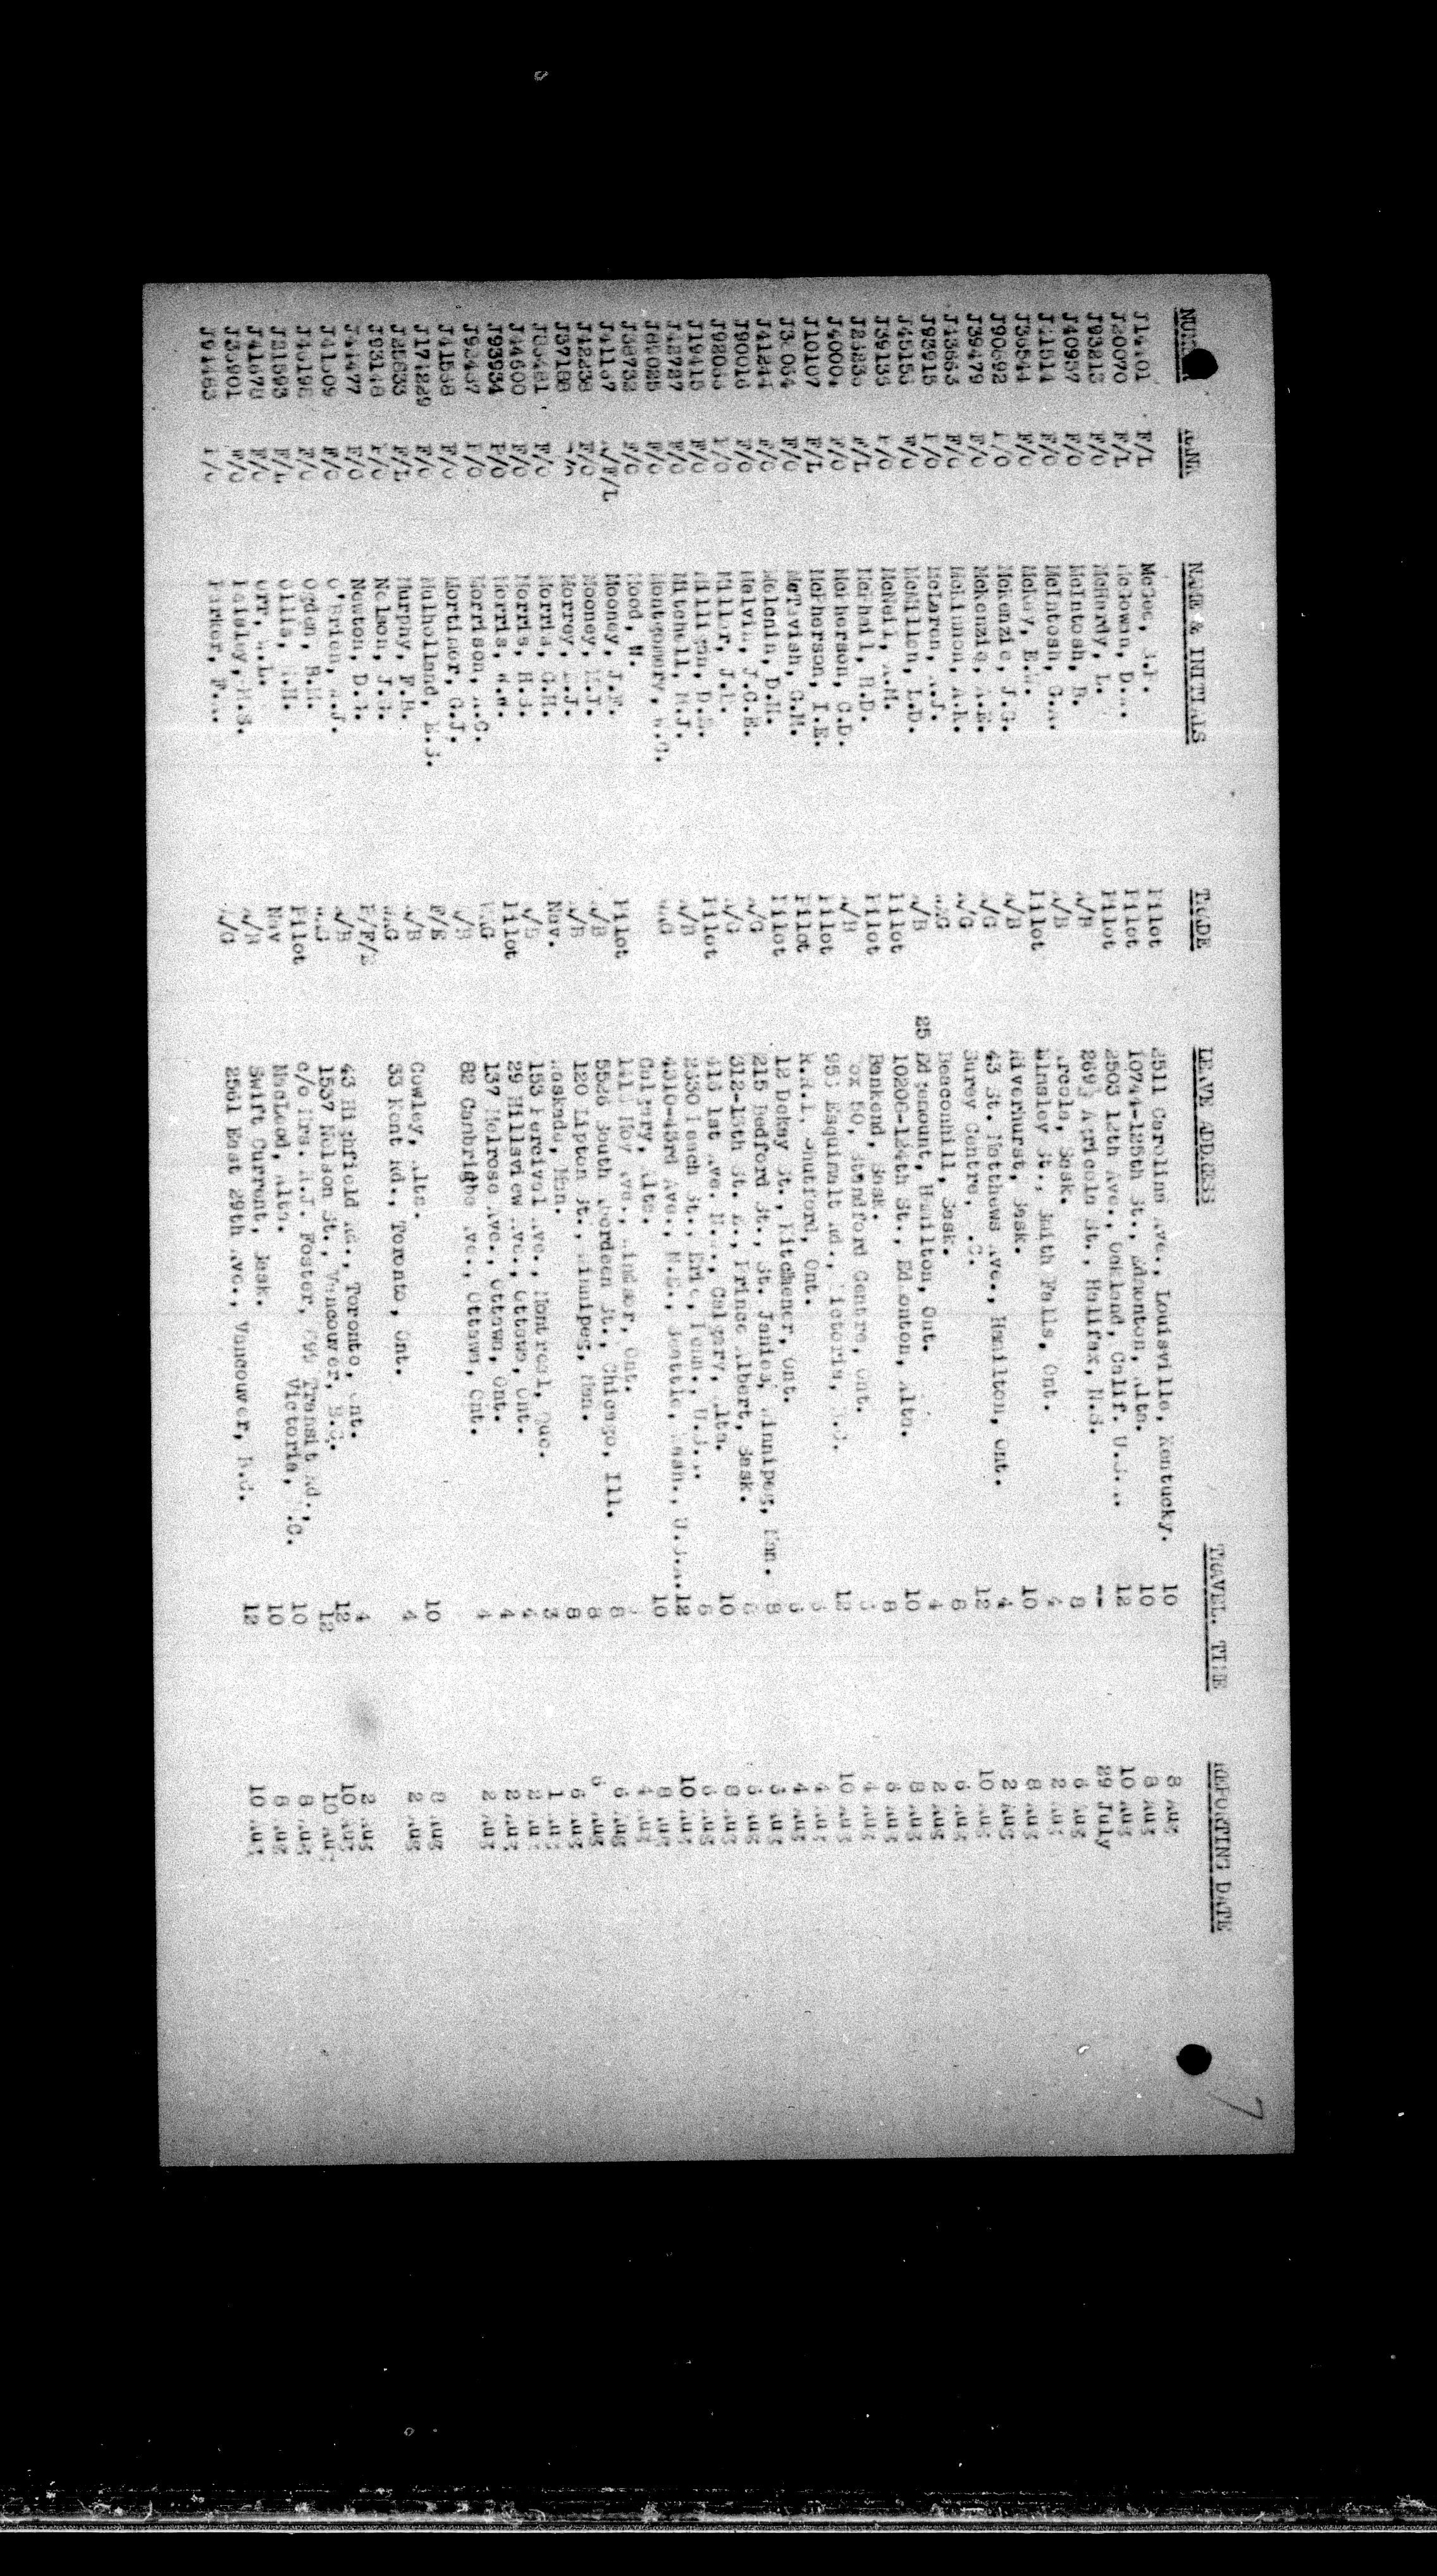 7
NUMBER RANK NAME & INITIALS TRADE LEAVE ADDRESS TRAVEL. TIME REPORTING DATE
J14401 F/L McGee, Pilot 2511 Carolina Ave., Louisville, Kentucky. 10 8 Aug
J20070 F/L McGowan, Pilot 10744-125th St., Edmonton, Alta. 10 8 Aug
J93213 F/O McHardy, L. Pilot 2503 12th Ave., Oakland, Calif. U.S.A. 12 10 Aug
J40957 F/O McIntosh, R. A/B Agricola St., Halifax, N.S. -- 29 July
J41514 F/O McIntosh, A/B Arcola, Sask. 8 6 Aug
J36544 F/O McKay, Pilot Elmsley St., Smith Falls, Ont. 4 2 Aug
J90692 P/O McKenzie, J.G. A/B Riverhurst, Sask. 10 8 Aug
J39479 F/O McKenzie, A.E. A/G 43 St. Matthews Ave., Hamilton, Ont. 4 2 Aug
J43663 F/O McKinnon, A.R. A/G Surey Centre, B.C. 12 10 Aug
J93915 P/O McLaren, A.J. WAG Beaconhill, Sask. 8 6 Aug
J45156 F/O McMillen, L.D. A/B 25 Edgemount, Hamilton, Ont. 4 2 Aug
J39135 F/O McNeil, A.M. Pilot 10206-124th St., Edmonton, Alta. 10 8 Aug
F/L McPhail, R.D. Pilot Bankend, Sask. 8 6 Aug
J40004 F/O McPherson, C.D. A/B Box 50, Standford Centre, Ont. 4 Aug
J10107 F/L McPherson, I.E. Pilot Esquimalt Rd., Victoria, B.C. 12 10 Aug
F/O McTavish, G.M. Pilot R.R.1, Shutford, Ont. 4 Aug
J41244 F/O Melchin, D.H. Pilot 12 Dekay St., Kitchener, Ont. 4 Aug
J90016 F/O Melvin, J.C.E. A/G 215 Bedford St., St. James, Winnipeg, Man. 8 Aug
P/O Miller, A/G 312-13th St. E., Prince Albert, Sask. Aug
J19415 F/O Milligan, D.E. Pilot 1st Ave. Calgary, Alta. 10 8 Aug
J42727 F/O Mitchell, M.J. A/B 2330 Peach St., Erie, Penn., U.S.A. Aug
F/O Montgomery, WAG 4310-43rd Ave., N.E., Seattle, Wash., U.S.A. 12 10 Aug
J38732 F/O Mood, W. Calgary, Alta. 10 8 Aug
J41157 A/F/L Mooney, J.F. Pilot Moy Ave., Windsor, Ont. 4 Aug
J42238 F/O Mooney, M.J. A/B 5526 South Aberdeen St., Chicago, Ill. 8 6 Aug
J37188 Morrey, A/B 120 Lipton St., Winnipeg, Man. 8 6 Aug
F/O Morris, G.H. Nav. Waskada, Man. 8 6 Aug
J44600 F/O Morris, H.S. A/B 153 Percival Ave., Montreal, Que. 3 1 Aug
J93934 P/O Morris, Pilot 29 Hillsview Ave., Ottawa, Ont. 4 2 Aug
J93437 P/O Morrison, WAG 137 Melrose Ave., Ottawa, Ont. 4 2 Aug
J41558 F/O Mortimor, G.J. A/B 82 Cambridge Ave., Ottawa, Ont. 4 2 Aug
F/O Mulholland, F/E
J25833 F/L Murphy, F.H. A/B Cowley, Alta. 10 8 Aug
J93148 P/O Nelson, J.G. WAG 33 Kent Rd., Toronto, Ont. 4 2 Aug
J44477 F/O Newton, F/E
J41509 F/O O'Brien, A/B 43 Highfield Rd., Toronto, Ont. 4 2 Aug
F/O Ogden, WAG 1537 Nelson St., Vancouver, B.C. 12 10 Aug
J21593 F/L Ollis, Pilot c/o Mrs. Foster, Transit Rd., 12 10 Aug
Victoria, B.C.
J41678 F/O Orr, Nav MacLeod, Alta. 10 8 Aug
J36901 F/O Paisley, A/B Swift Current, Sask. 10 8 Aug
J94463 P/O Parker, A/G 2561 East 29th Ave., Vancouver, B.C. 12 10 Aug